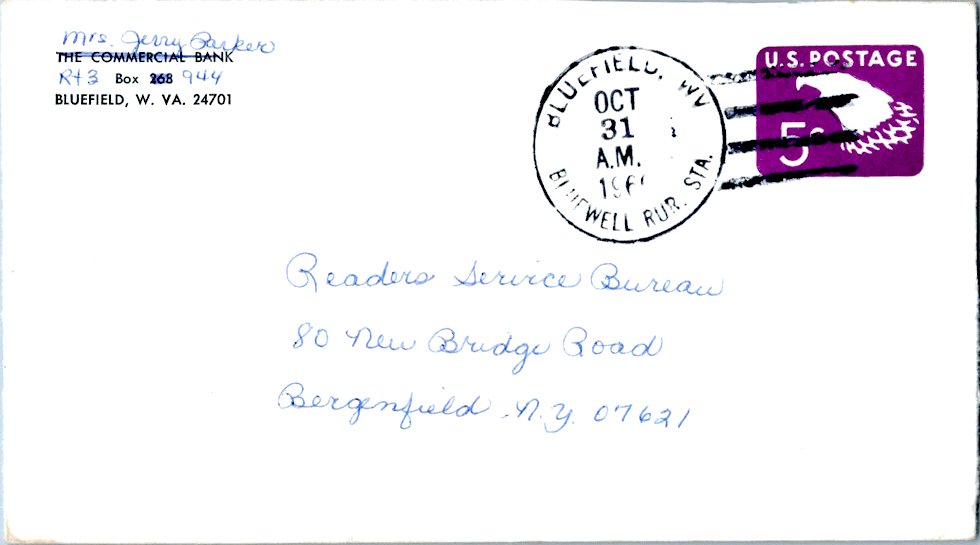 Mrs. Jerry Parker
THE COMMERCIAL BANK
Rt 3 Box 268 944
BLUEFIELD, W. VA. 24701
BLUEFIELD, WV
OCT
31
A.M.
BLUEWELL RUR. STA.
U.S. POSTAGE
5¢
Readers Service Bureau
80 New Bridge Road
Bergenfield, N.Y. 07621